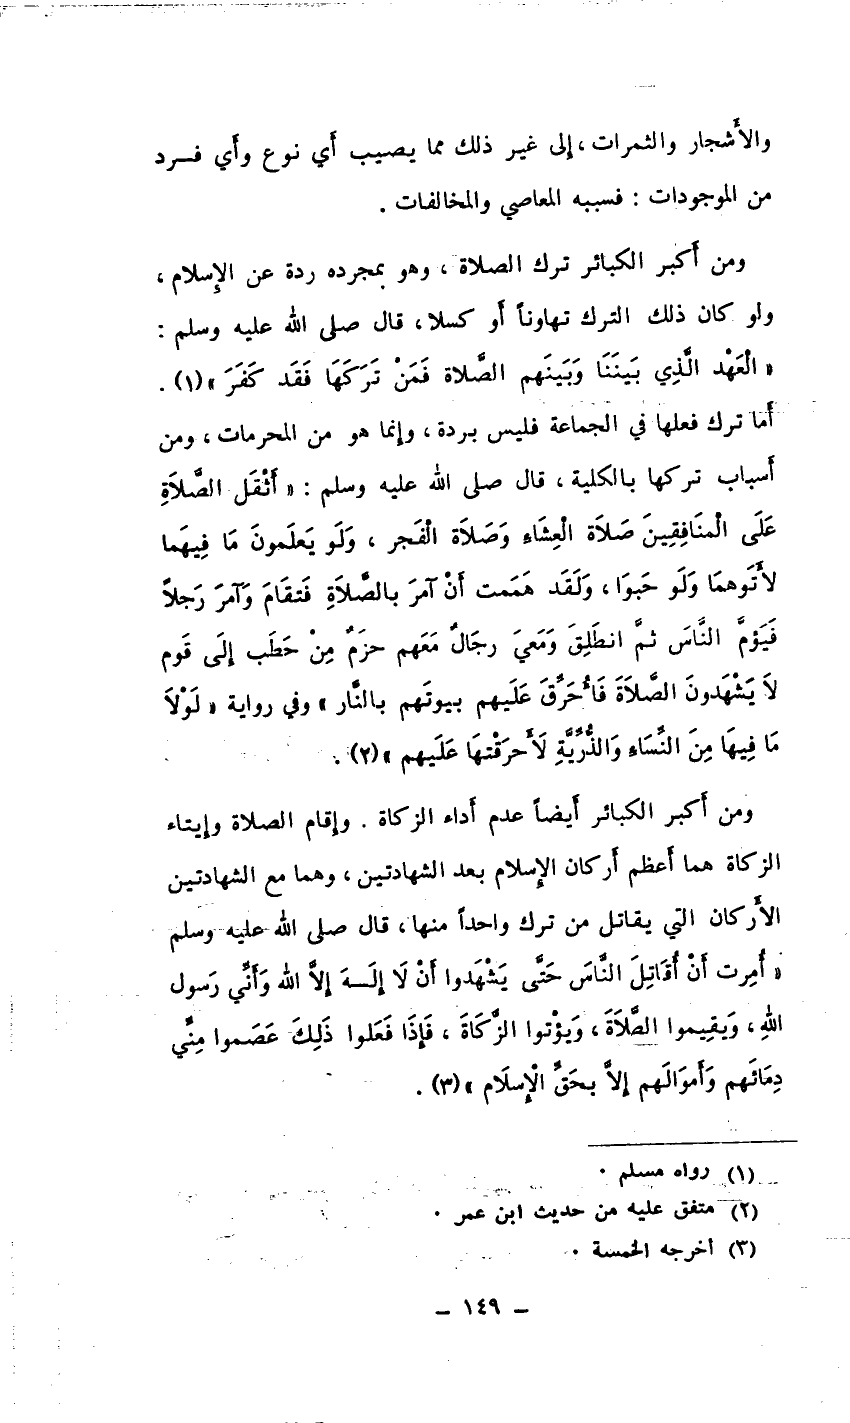 والأشجار والثمرات ، إلى غير ذلك مما يصيب أي نوع وأي فرد
من الموجودات : فسببه المعاصي والمخالفات .
ومن أكبر الكبائر ترك الصلاة ، وهو بمجرده ردة عن الإسلام ،
ولو كان ذلك الترك تهاوناً أو كسلا ، قال صلى الله عليه وسلم :
« الْعَهْد الَّذِي بَينَنَا وَبَينَهم الصَّلاة فَمَنْ تَرَكَهَا فَقَد كَفَرَ »(١) .
أما ترك فعلها في الجماعة فليس بردة ، وإنما هو من المحرمات ، ومن
أسباب تركها بالكلية ، قال صلى الله عليه وسلم : « أَثْقَل الصَّلاَةِ
عَلَى الْمنَافِقِينَ صَلاَة الْعِشَاءِ وَصَلاَة الْفَجر ، وَلَو يَعلَمونَ مَا فِيهَما
لأَتَوهمَا وَلَو حَبوَا ، وَلَقَد هَمَمت أَنْ آمرَ بالصَّلاَةِ فَتقَامَ وَآمرَ رَجلاً
فَيَؤمَّ النَّاسَ ثمَّ انطَلِقَ وَمَعيَ رجَالٌ مَعَهم حزَمٌ مِنْ حَطَب إلَى قَوم
لاَ يَشْهَدونَ الصَّلاَةَ فَأُحَرِّقَ عَلَيهم بيوتَهم بالنَّار » وفي رواية « لَوْلاَ
مَا فِيهَا مِنَ النِّسَاءِ وَالذُّرِّيَّةِ لَأَحرَقْتهَا عَلَيهم »(٢) .
ومن أكبر الكبائر أيضاً عدم أداء الزكاة . وإقام الصلاة وإيتاء
الزكاة هما أعظم أركان الإسلام بعد الشهادتين ، وهما مع الشهادتين
الأركان التي يقاتل من ترك واحداً منها ، قال صلى الله عليه وسلم
« أُمِرت أَنْ أُقَاتِلَ النَّاسَ حَتَّى يَشْهَدوا أَنْ لَا إلَـهَ إلاَّ الله وَأَنِّي رَسول
اللهِ ، وَيقِيموا الصَّلاَةَ ، وَيؤْتوا الزَّكَاةَ ، فَإذَا فَعَلوا ذَلِكَ عَصَموا مِنِّي
دِمَائَهم وَأَموَالَهم إلاَّ بحَقِّ الْإسلَام »(٣) .
(١) رواه مسلم .
(٢) متفق عليه من حديث ابن عمر .
(٣) أخرجه الخمسة .
– ١٤٩ –